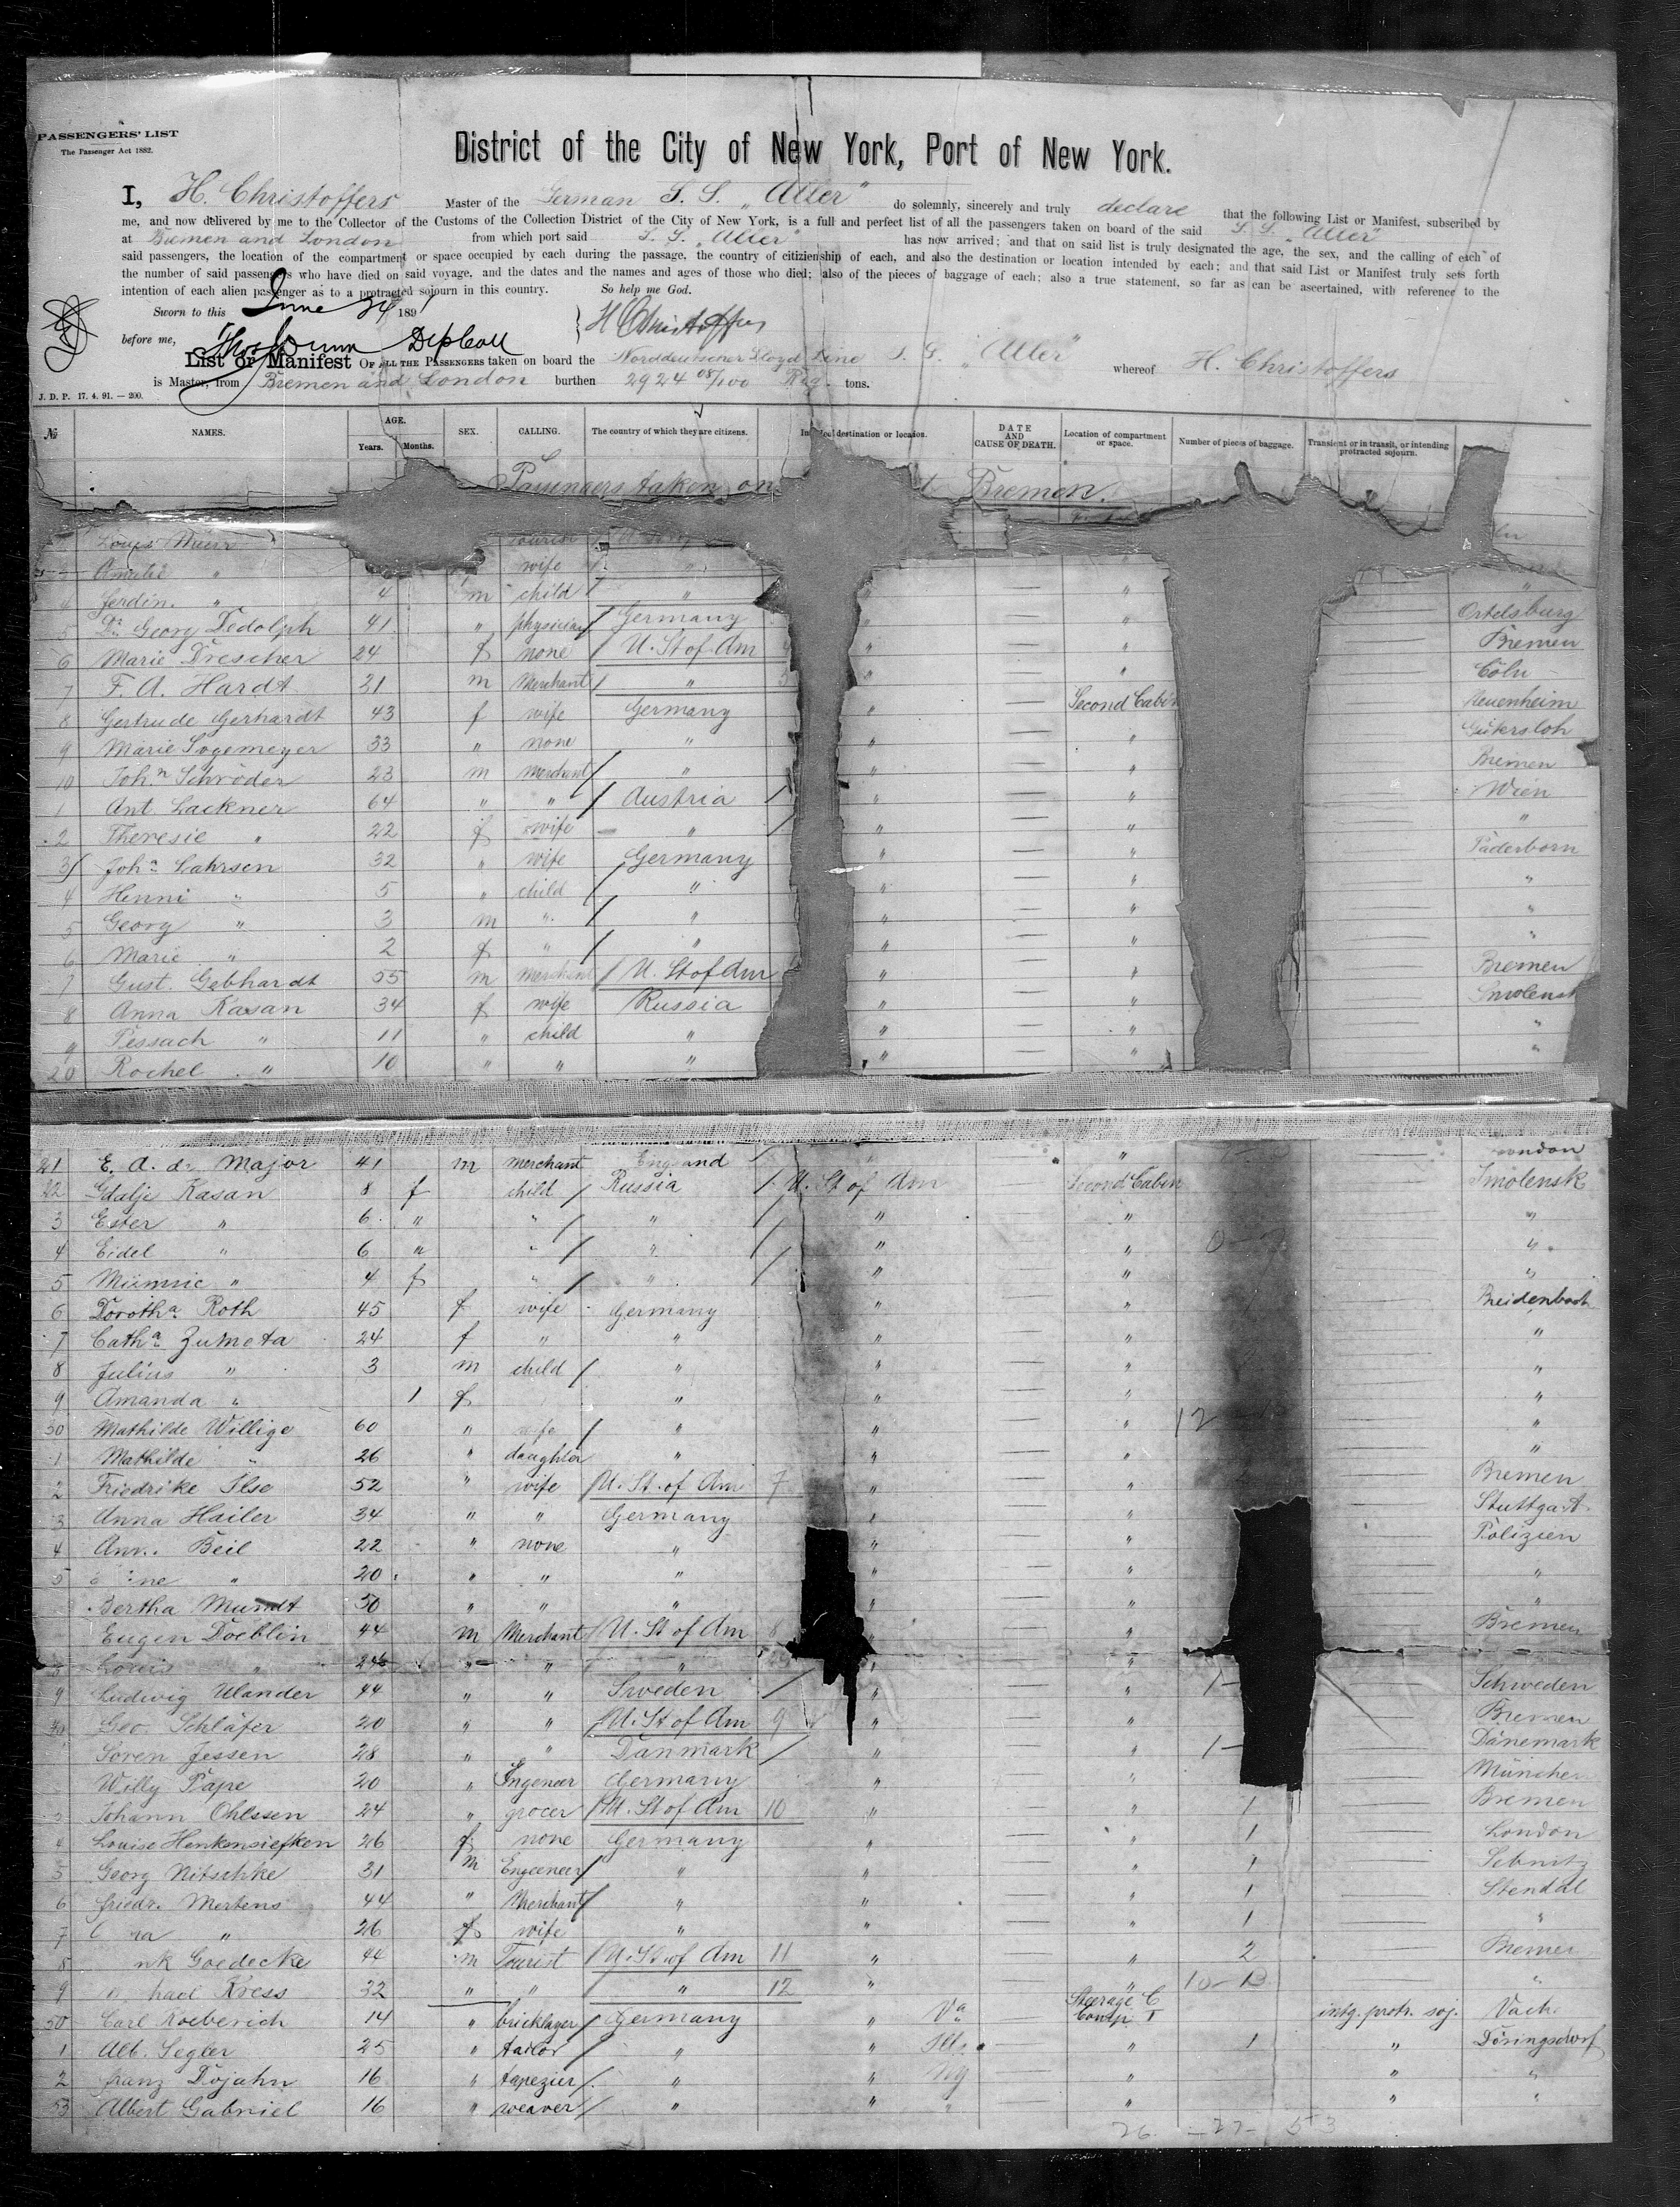 PASSENGERS' LIST
The Passenger Act 1882.
District of the City of New York, Port of New York.
I, H. Christoffers Master of the German S. S. „Aller" do solemnly, sincerely and truly declare that the following List or Manifest, subscribed by
me, and now delivered by me to the Collector of the Customs of the Collection District of the City of New York, is a full and perfect list of all the passengers taken on board of the said S. S. „Aller"
at Bremen and London from which port said S. S. „Aller" has now arrived; and that on said list is truly designated the age, the sex, and the calling of each of
said passengers, the location of the compartment or space occupied by each during the passage, the country of citizienship of each, and also the destination or location intended by each; and that said List or Manifest truly sets forth
the number of said passengers who have died on said voyage, and the dates and the names and ages of those who died; also of the pieces of baggage of each; also a true statement, so far as can be ascertained, with reference to the
intention of each alien passenger as to a protracted sojourn in this country. So help me God.
Sworn to this June 24 1891
before me, H Christoffers
List or Manifest OF ALL THE PASSENGERS taken on board the Norddeutscher Lloyd Line S. S. „Aller" whereof H. Christoffers
is Master, from Bremen and London burthen 2924 08/100 Reg. tons.
J. D. P. 17. 4. 91. — 200.
№ NAMES. AGE. Years. Months. SEX. CALLING. The country of which they are citizens. destination or location. DATE AND CAUSE OF DEATH. Location of compartment or space. Number of pieces of baggage. Transient or in transit, or intending protracted sojourn.
Passengers taken on Bremen.
Louis tourist
Amalie " wife "
4 Ferdin. " 4 m child " " "
5 Dr. Georg Dedolph 41 " physician Germany " — " — Ortelsburg
6 Marie Drescher 24 f none U. St of Am " — " — Bremen
7 F. A. Hardt 31 m Merchant " " — " — Cöln
8 Gertrude Gerhardt 43 f wife Germany " — Second Cabin — Neuenheim
9 Marie Sogemeyer 33 " none " " — " — Gütersloh
10 John Schröder 23 m merchant " " — " — Bremen
1 Ant. Lackner 64 " " Austria " — " — Wien
2 Theresie " 22 f wife " " — " — "
3 Joha Lahrsen 32 " wife Germany " — " — Paderborn
4 Henni " 5 " child " " — " — "
5 Georg " 3 m " " " — " — "
6 Marie " 2 f " " " — " — "
7 Gust. Gebhardt 55 m merchant U. St of Am " — " — Bremen
8 Anna Kasan 34 f wife Russia " — " — Smolensk
" Pessach " 11 " child " " — " — "
20 Rochel " 10 " " " " — " — "
21 E. A. de Major 41 m merchant England " — " — London
22 Gdalje Kasan 8 f child Russia U. St of Am — Second Cabin — Smolensk
3 Ester " 6 " " " " — " — "
4 Eidel " 6 " " " " — " — "
5 " 4 f " " " — " — "
6 Dorotha Roth 45 f wife Germany " — " — Breidenbach
7 Catha Zumeta 24 f " " " — " — "
8 Julius " 3 m child " " — " — "
9 Amanda " 1 f " " — " — "
30 Mathilde Willige 60 " wife " " — " 12 — "
1 Mathilde " 26 " daughter " " — " — "
2 Friedrike Ilse 52 " wife U. St. of Am 7 " — " — Bremen
3 Anna Hailer 34 " " Germany " — " — Stuttgart
4 Beil 22 " none " " — " — Polizien
5 " 20 " " " " — " — "
Bertha Mundt 50 " " " " — " — "
Eugen Doeblin 44 m Merchant U. St of Am 8 " — " — Bremen
Louis " " " " " — "
9 Ludwig Ulander 44 " " Sweden " — " 1 — Schweden
Geo. Schläfer 20 " " U. St of Am 9 " — " — Bremen
Soren Jessen 28 " " Danmark " — " 1 — Dänemark
Willy Pape 20 " Ingeneer Germany " — " — München
3 Johann Ohlssen 24 " grocer U. St of Am 10 " — " 1 — Bremen
4 Louise Henkensiefken 26 f none Germany " — " 1 — London
5 Georg Nitschke 31 m Engeneer " " — " 1 — Sebnitz
6 Friedr. Mertens 44 " Merchant " " — " 1 — Stendal
7 " 26 f wife " " — " 1 — "
8 Goedecke 44 m Tourist U. St of Am 11 " — " 2 — Bremen
9 Kress 32 " " " 12 " — " — "
50 Carl Roeberich 14 " bricklayer Germany " Va — Steerage C Comp. I intg. protr. soj. Vach.
1 Alb. Segler 25 " tailor " " Ills — " 1 " Döringsdorf
2 Franz Dojahn 16 " tapezier " " NY — " " "
53 Albert Gabriel 16 " weaver " " " — " " "
26 — 27 — 53